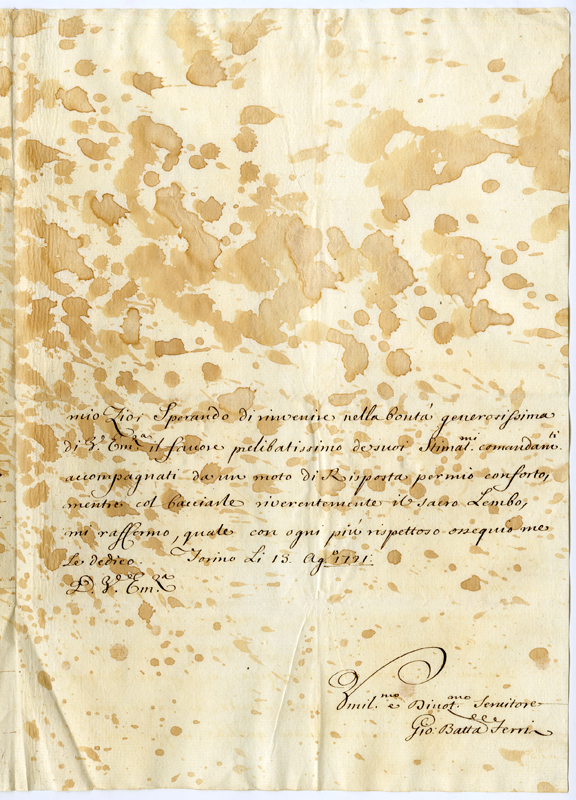 mio Zior Sperando di rinvenire nella bontá generosissima
di V.ª Em.ª il favore prelibatissimo de suoi Stimat.mi comandam.ti
accompagnati da un moto di Risposta per mio conforto,
mentre col bacciarle riverentemente il sacro Lembo,
mi raffermo, quale con ogni più rispettoso ossequio me
le dedico. Torino Li 13. Ag.º 1791.
D. V.ª Em.ª
Vmil.mo e Diuot.mo Seruitore
Gio Batta Ferri